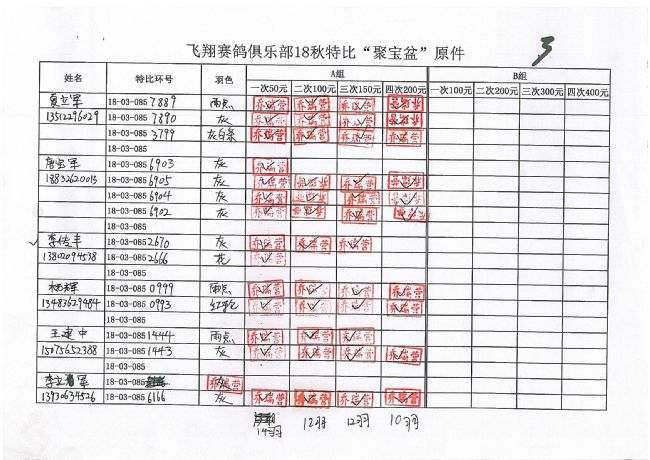 飞翔赛鸽俱乐部18秋特比“聚宝盆”原件 3
姓名 特比环号 羽色 A组 B组
一次50元 二次100元 三次150元 四次200元 一次100元 二次200元 三次300元 四次400元
夏立军 18-03-085 7889 雨点 乔瑞营 乔瑞营 乔瑞营
13512296029 18-03-085 7890 灰 乔瑞营 乔瑞营 乔瑞营
18-03-085 3799 灰白条 乔瑞营 乔瑞营 乔瑞营 乔瑞营
18-03-085
唐宝军 18-03-085 6903 灰 乔瑞营
18832620013 18-03-085 6905 灰 乔瑞营 乔瑞营
18-03-085 6904 灰 乔瑞营 乔瑞营
18-03-085 6902 灰 乔瑞营 乔瑞营
18-03-085
李传丰 18-03-085 2670 灰 乔瑞营 乔瑞营 乔瑞营
13802094538 18-03-085 2666 花
18-03-085
杨辉 18-03-085 0999 雨点 乔瑞营 乔瑞营 乔瑞营 乔瑞营
13483629484 18-03-085 0993 红轮 乔瑞营 乔瑞营 乔瑞营 乔瑞营
18-03-085
王建中 18-03-085 1444 雨点 乔瑞营 乔瑞营 乔瑞营
15075652388 18-03-085 1443 灰 乔瑞营 乔瑞营 乔瑞营 乔瑞营
18-03-085
18-03-085 乔瑞营
13930634526 18-03-085 6166 灰 乔瑞营 乔瑞营 乔瑞营 乔瑞营
14羽 12羽 12羽 10羽